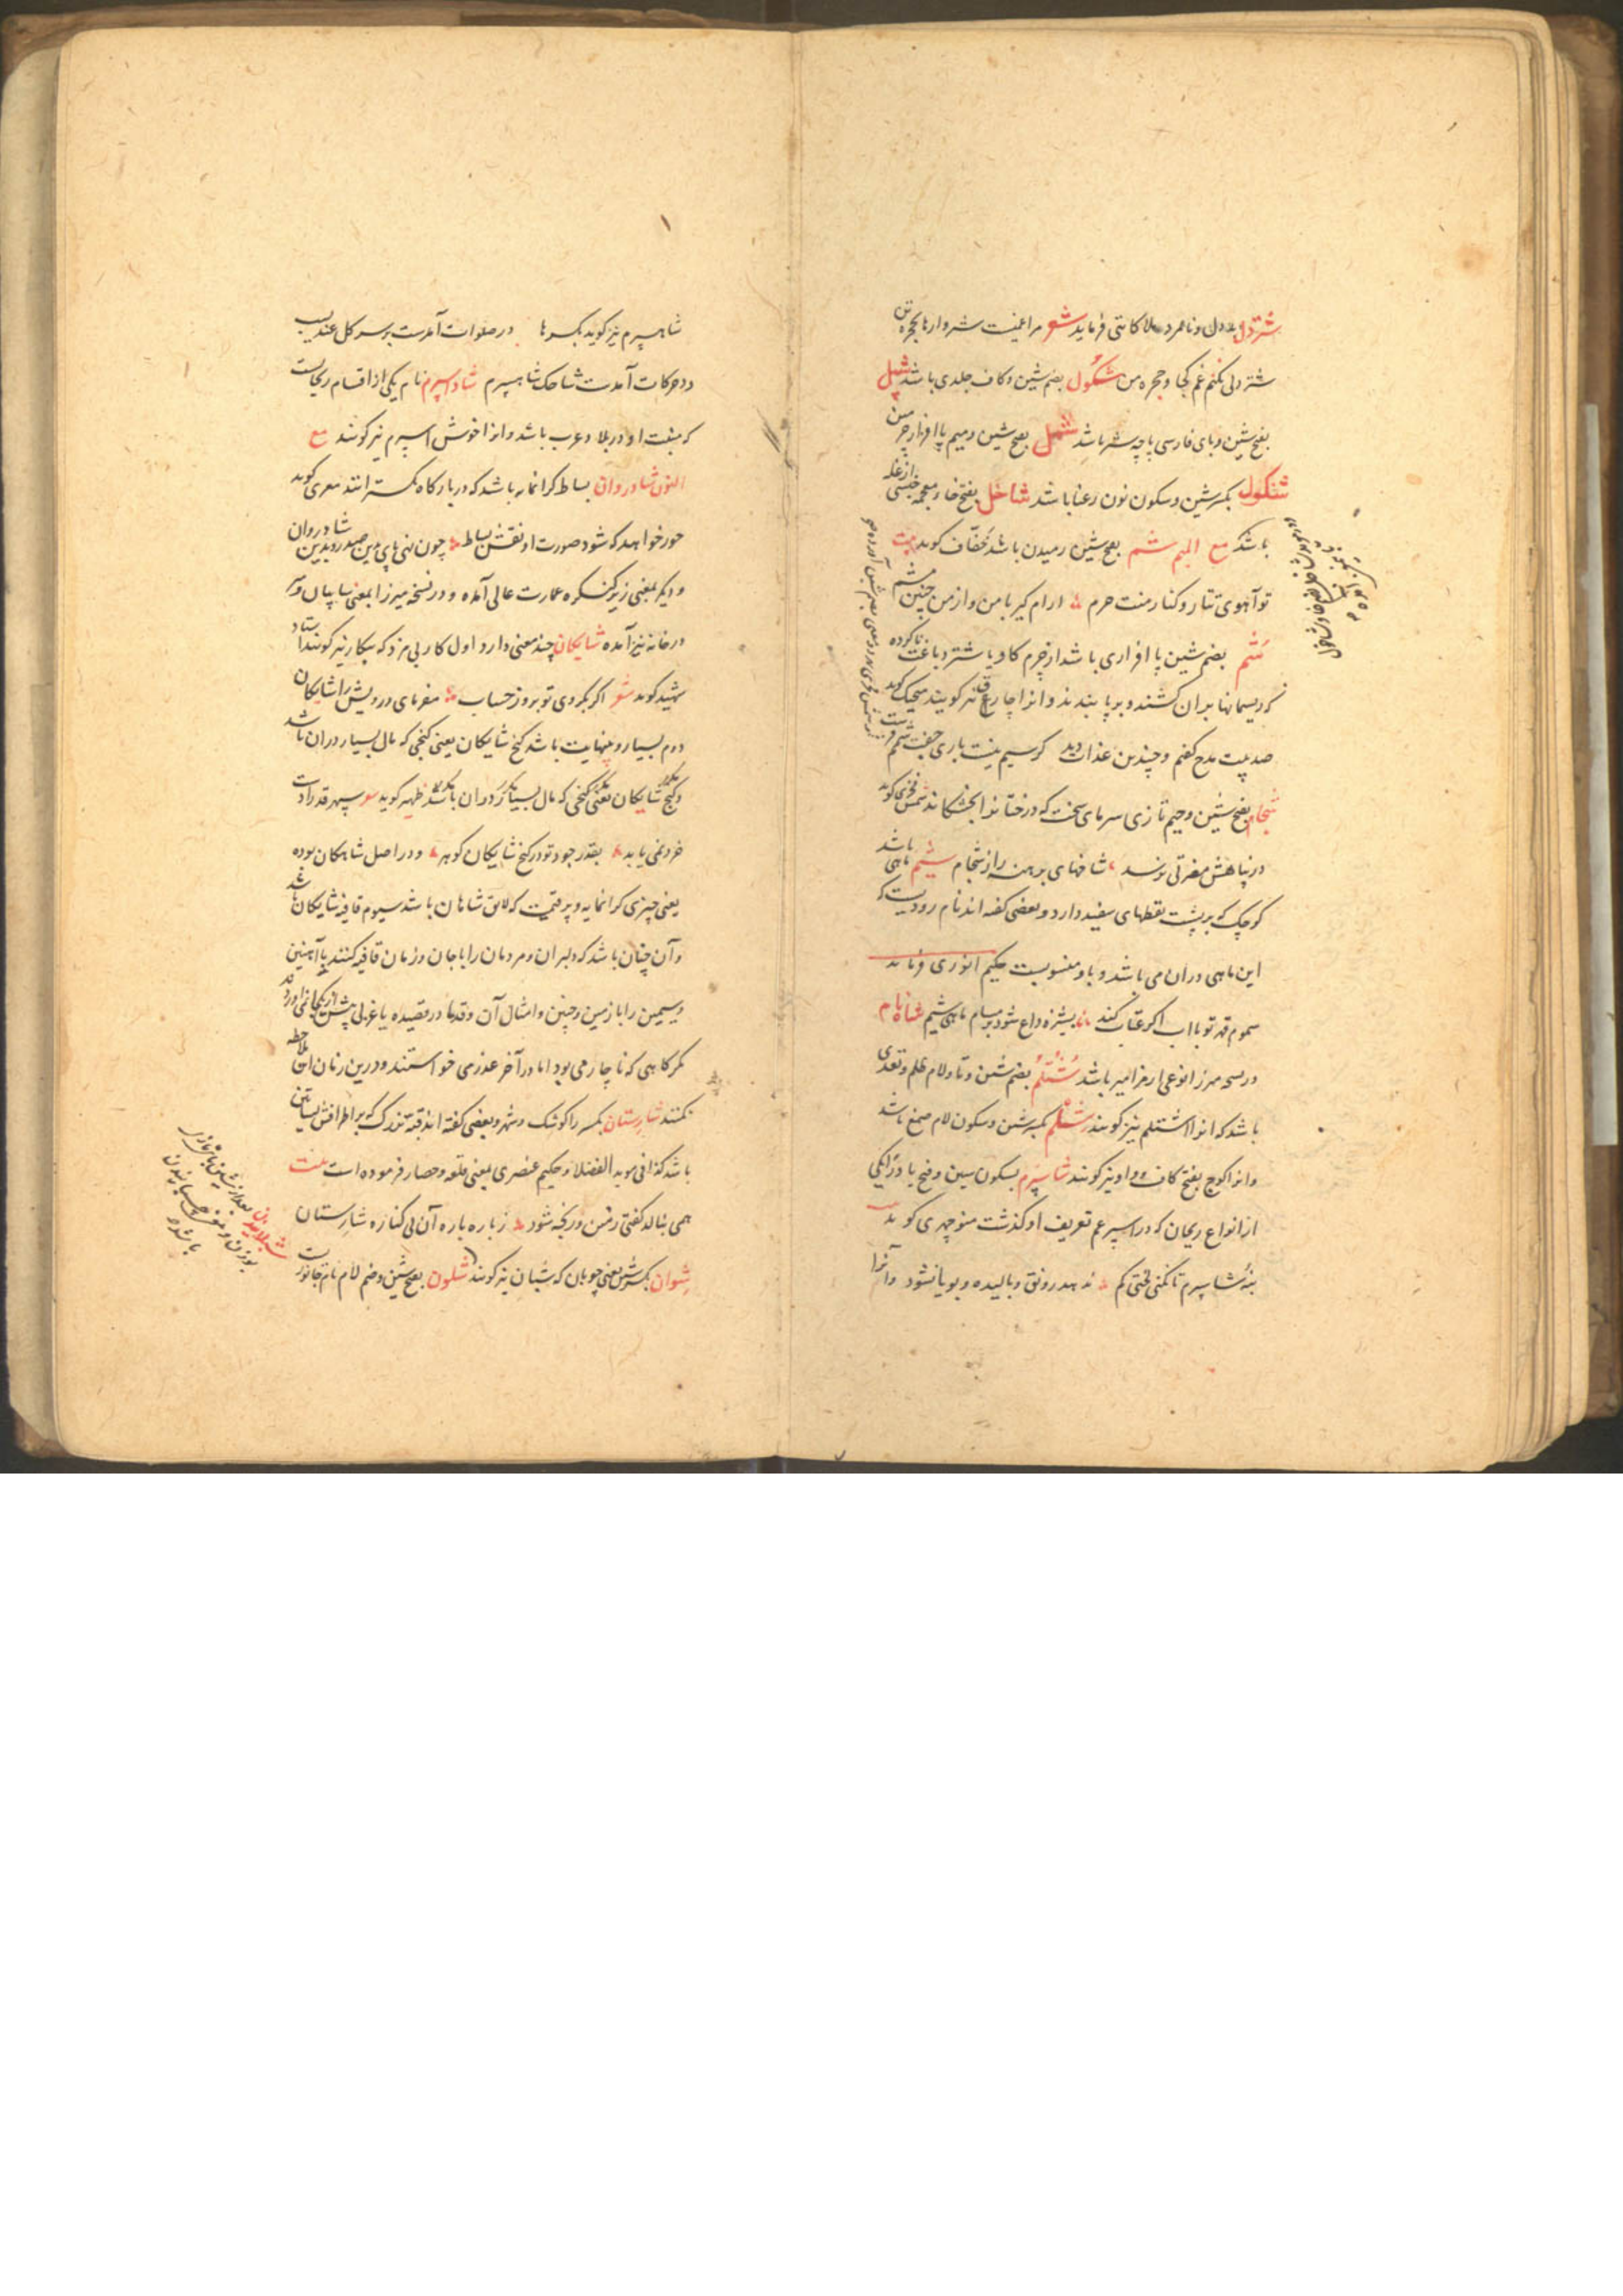 شتردل بددل و نامرد مولانا کاتبی فرماید شعر مرا غمیست شتروارها بحجره تن
شتردلی نکنم غم کجا و حجره من شکول بضم شین و کاف جلدی باشد شپل
بفتح شین و بای فارسی پاچه شتر باشد شمل بفتح شین و میم پا افزار چرمین
شنگول بکسر شین و سکون نون رعنا باشد شاخل بفتح خاء معجمه جنسی از غله
باشد مع المیم شم بفتح شین رمیدن باشد خفاف کوید بیت
تو آهوی تتار و کنار منت حرم آرام کیر با من و از من چنین مشم
شم بضم شین پا افزاری باشد از چرم کاو یا شتر دباغت ناکرده
که ریسمانها بدان کشند و بر پا بندند و انرا چارغ نیز کویند منجیک کوید
صد بیت مدح کفتم و چندین عذاب دید کر سیم نیست باری جفت شمم فرست
شجام بفتح شین و جیم تازی سرمای سخت که درختانرا بخشکاند شمس فخری کوید
در پناهش مضرتی نرسد شاخهای برهنه را از شجام شیم ماهی باشد
کوچک که بر پشت نقطهای سفید دارد و بعضی کفته اند نام رودیست که
این ماهی در ان می باشد و باو منسوبست حکیم انوری فرماید
سموم قهر تو با اب اکر عتاب کند بشیزه داغ شود بر مسام ماهی شیم
در نسخه میرزا نوعی از مزامیر باشد شتلم بضم شین و تا و لام ظلم و تعدی
باشد که انرا اشتلم نیز کویند شلم بکسر شین و سکون لام صمغ باشد
و انرا کوج بفتح کاف و واو نیز کویند شاسپرم بسکون سین و فتح با و را یکی
از انواع ریحان که در اسپرغم تعریف او کذشت منوچهری کوید
بنه شاسپرم تا نکنی لختی کم ندهد رونق و بالیده و بویا نشود و آنرا
شاهسپرم نیز کوید بکسر ها در صلوات آمدست بر سر کل عندلیب
در حرکات آمدست شاخک شاهسپرم شاداسپرم نام یکی از اقسام ریحانست
که منبت او در بلاد عرب باشد و انرا خوش اسپرم نیز کویند مع
النون شادروان بساط کرانمایه باشد که در بارکاه کسترانند معزی کوید
حور خواهد که شود صورت او نقش بساط چون نهی پای بدین صدر و بدین شادروان
و دیکر بمعنی زیر کنکره عمارت عالی آمده و در نسخه میرزا بمعنی سایبان و
در خانه نیز آمده شایکان چند معنی دارد اول کار بی مزد که بیکار نیز کویند استاد
شهید کوید شعر اکر بکروی تو بروز حساب مفرمای درویش را شایکان
دوم بسیار و بینهایت باشد کنج شایکان یعنی کنجی که مال بسیار در ان باشد
و کنج شایکان یعنی کنجی که مال بسیار در ان باشد ظهیر کوید شعر سپهر قدرادت
خرد نمی یابد بقدر جود تو در کنج شایکان کوهر و در اصل شاهکان بوده
یعنی چیزی کرانمایه و پر قیمت که لایق شاهان باشد سیوم قافیه شایکان باشد
و آن چنان باشد که دلبران و مردمان را با جان و زمان قافیه کنند یا آهنین
و سیمین را با زمین و چنین و امثال آن و قدما در قصیده یا غزلی بیش از یکجا نمی اوردند
مکر کاهی که ناچار می بود اما در آخر عذر می خواستند و درین زمان ان ملاحظه
نکنند شارستان بکسر را کوشک و شهر و بعضی کفته اند قبه بزرک که بر اطرافش بساتین
باشد کذا فی موید الفضلا و حکیم عنصری بمعنی قلعه و حصار فرموده است بیت
همی بنالد کفتی زمین و ریخته شود ز باره باره آن بی کناره شارستان
شوان بکسر شین یعنی چوپان که شبان نیز کویند شلون بفتح شین و ضم لام نام جانور